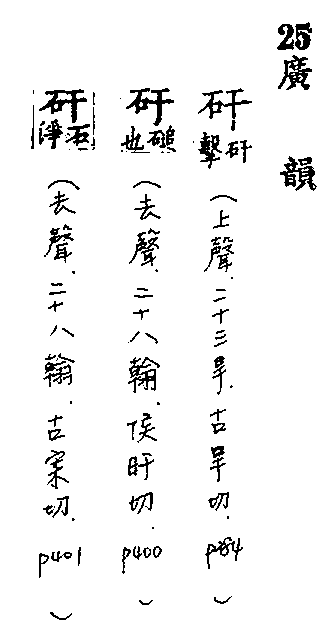 25廣韻
矸矸擊(上聲.二十三旱.古旱切.p284)
矸磓也(去聲.二十八翰.侯旰切.p400)
矸石淨(去聲.二十八翰.古案切.p401)